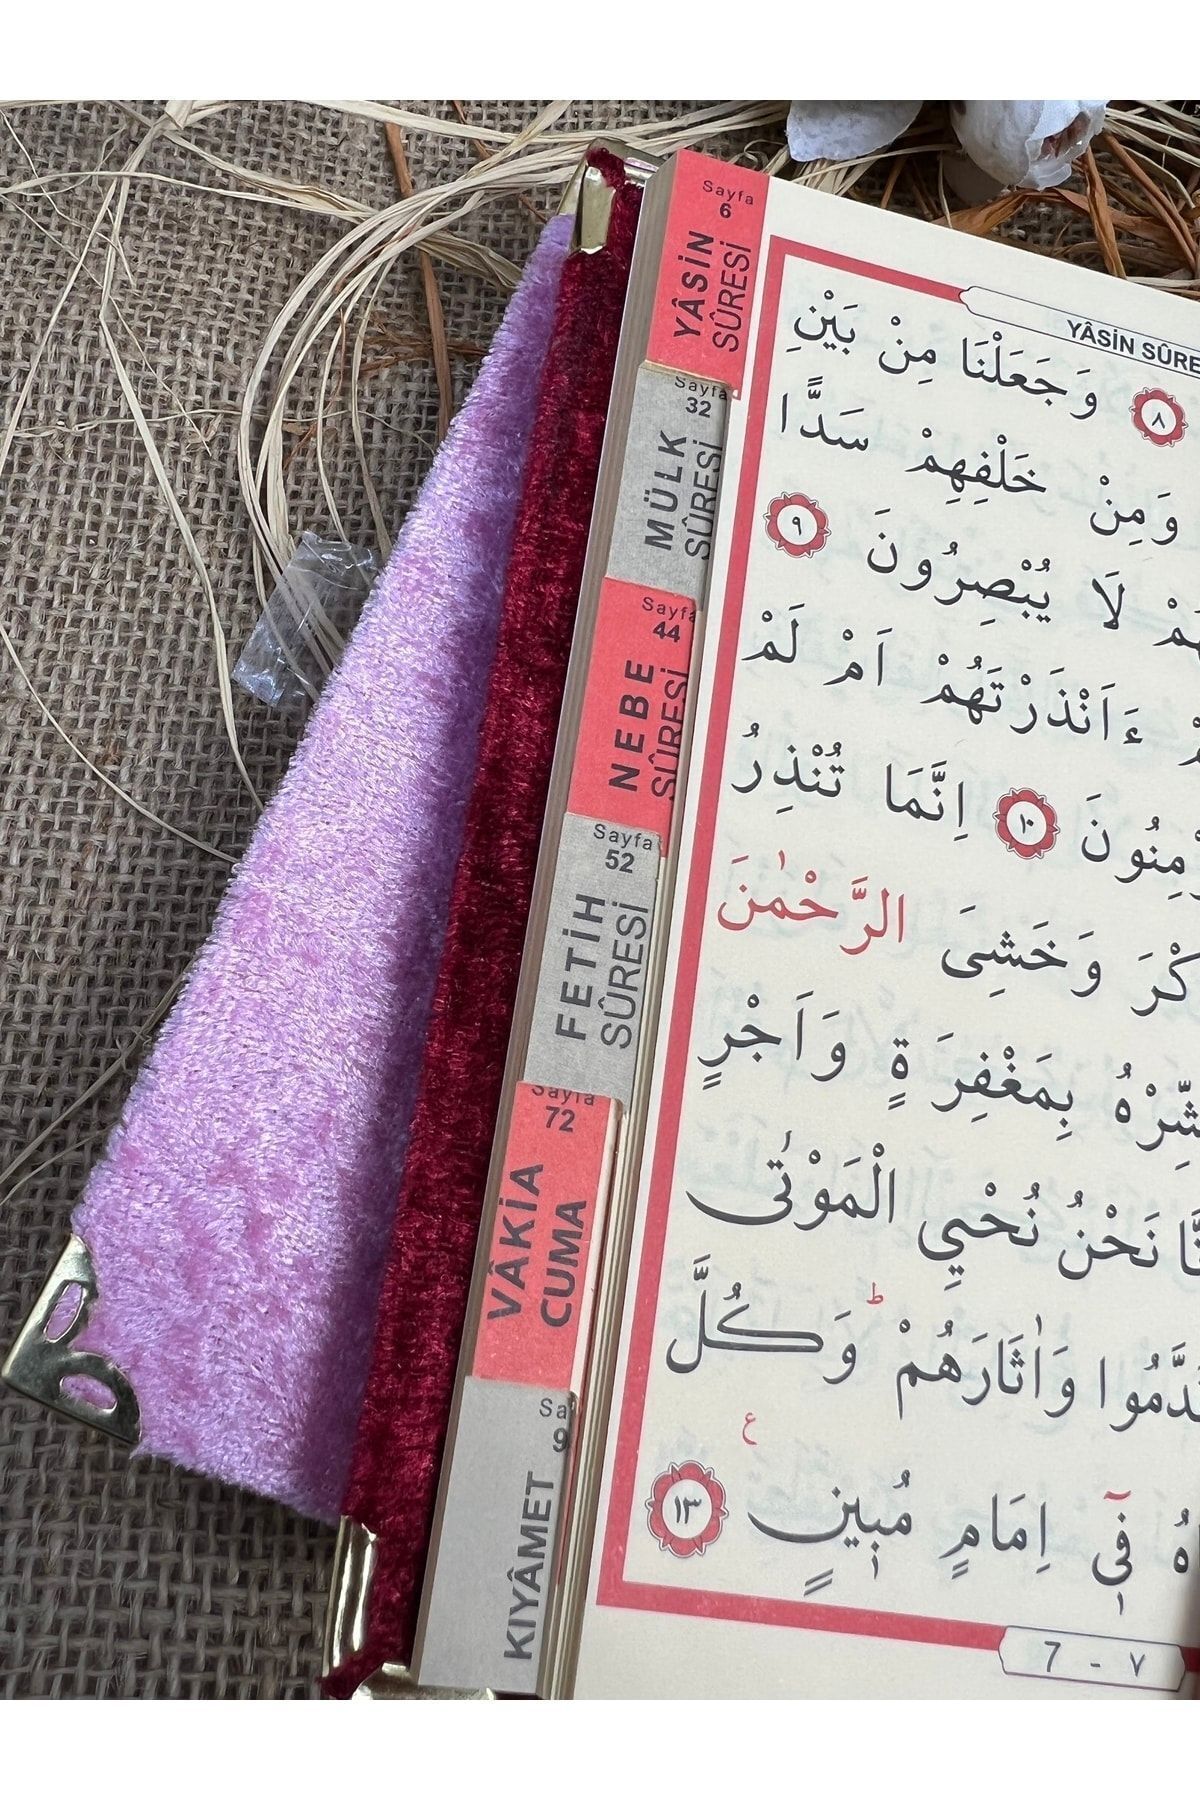 Sayfa
6
YÂSİN
SÛRESİ
Sayfa
32
MÜLK
SÛRESİ
Sayfa
44
NEBE
SÛRESİ
Sayfa
52
FETİH
SÛRESİ
Sayfa
72
VÂKİA
CUMA
KIYÂMET
YÂSİN SÛRE
٨ وَجَعَلْنَا مِنْ بَيْنِ
وَمِنْ خَلْفِهِمْ سَدًّا
لَا يُبْصِرُونَ ٩
ءَاَنْذَرْتَهُمْ اَمْ لَمْ
١٠ اِنَّمَا تُنْذِرُ
وَخَشِىَ الرَّحْمٰنَ
بِمَغْفِرَةٍ وَاَجْرٍ
نَحْنُ نُحْيِي الْمَوْتٰى
وَاٰثَارَهُمْ ط وَكُلَّ
فٖٓى اِمَامٍ مُبٖينٍ ع ١٣
7 - ٧